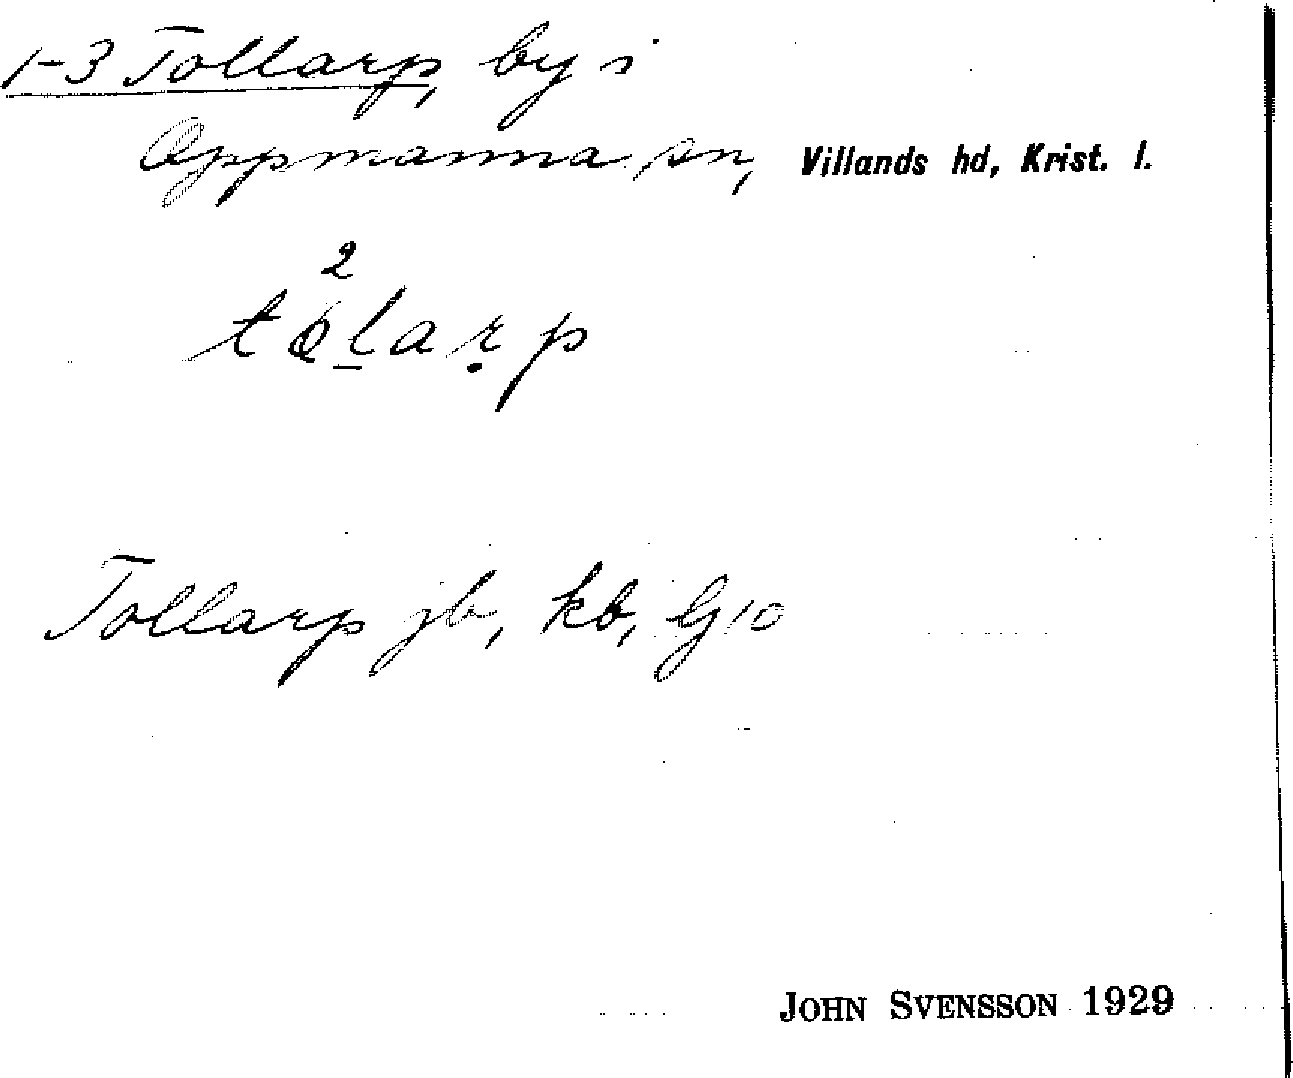 1-3 Tollarp, by i
Oppmanna sn, Villands hd, Krist. l.
2
tòḻarp̣
Tollarp jb, kb, Gj10
JOHN SVENSSON 1929